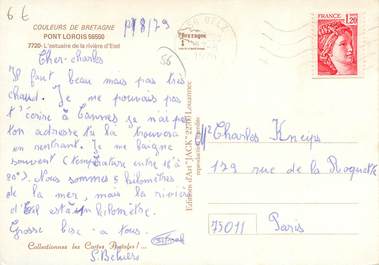 6 €
COULEURS DE BRETAGNE
PONT LOROIS 56550
7720 - L'estuaire de la rivière d'Etel
1/8/79
56
Cher-charles
Il fait beau mais pas très
chaud. Je ne pouvais pas
t'écrire à Cannes je n'ai pas
ton adresse tu la trouvera
en rentrant. Je me baigne
souvent (température entre 18° à
20°). Nous sommes à kilomètres
de la mer, mais la rivière
d'Etel est à un kilomètre.
Grosse bise - a tous
S. Behiers
Collectionnez les Cartes Postales
Editions d'Art "JACK" 22700 Louannec
reproduction interdite
Bretagne
FRANCE
1,20
Mr Charles Kneys
179 rue de la Roquette
75011
Paris